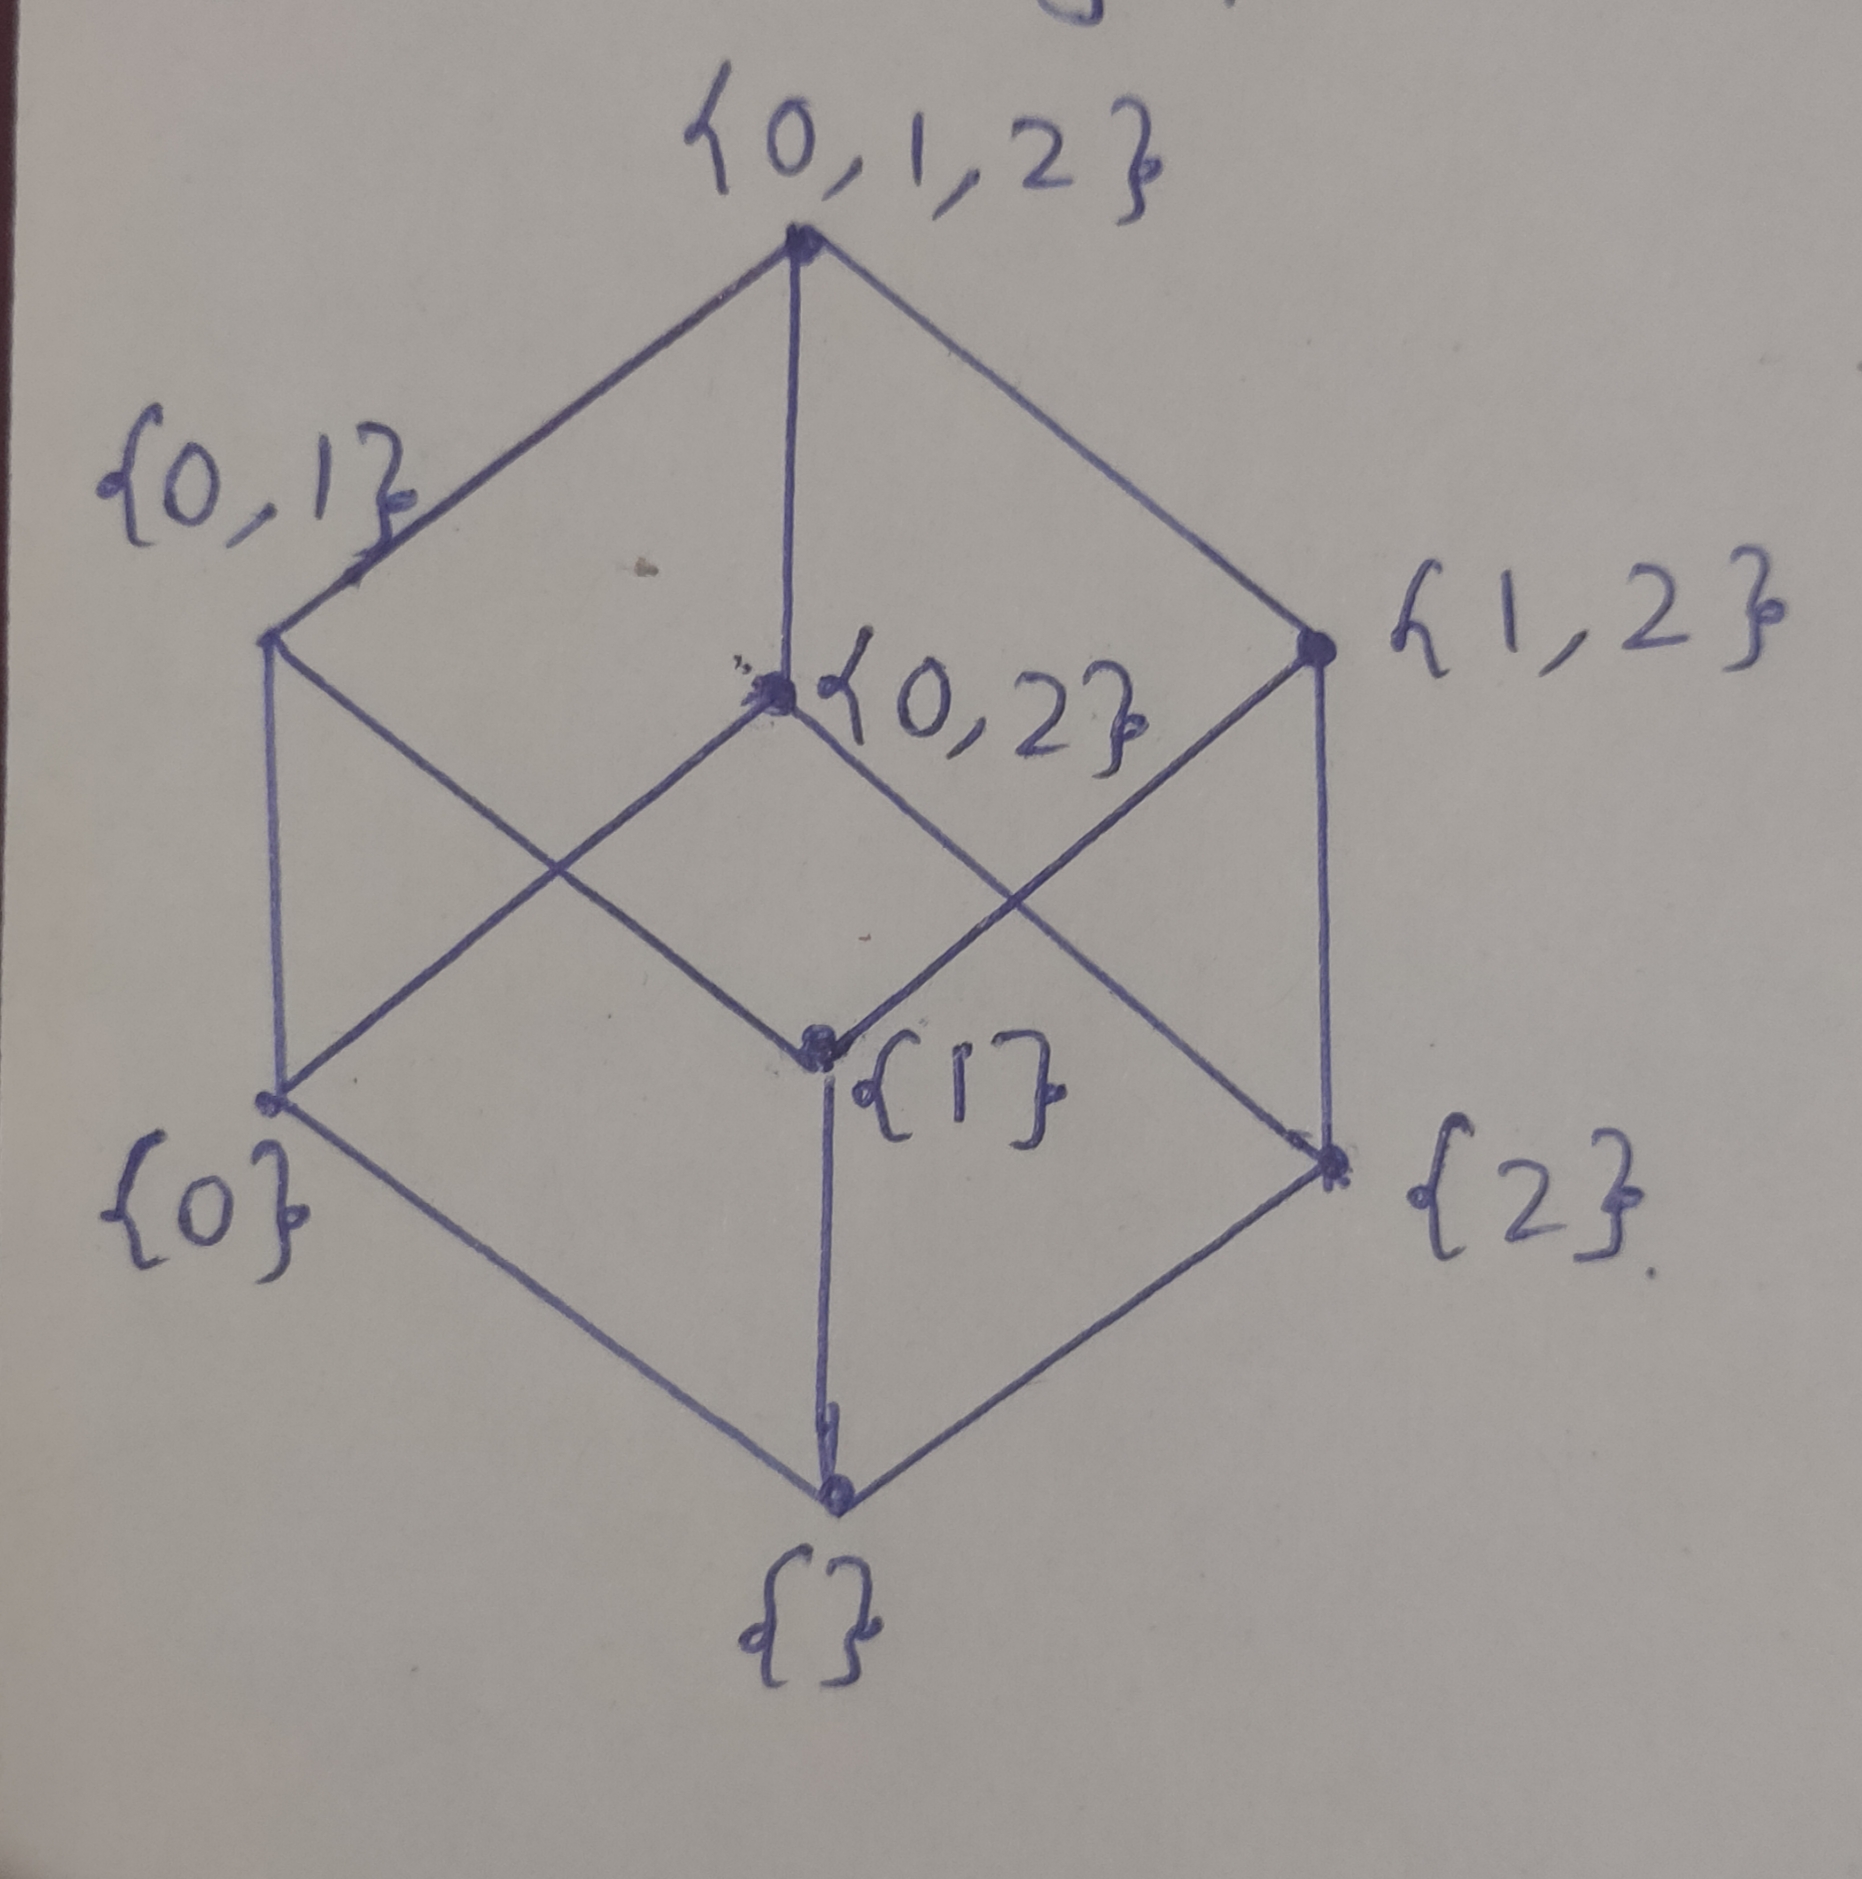 {0,1,2}
{0,1}
{1,2}
{0,2}
{1}
{0}
{2}
{}